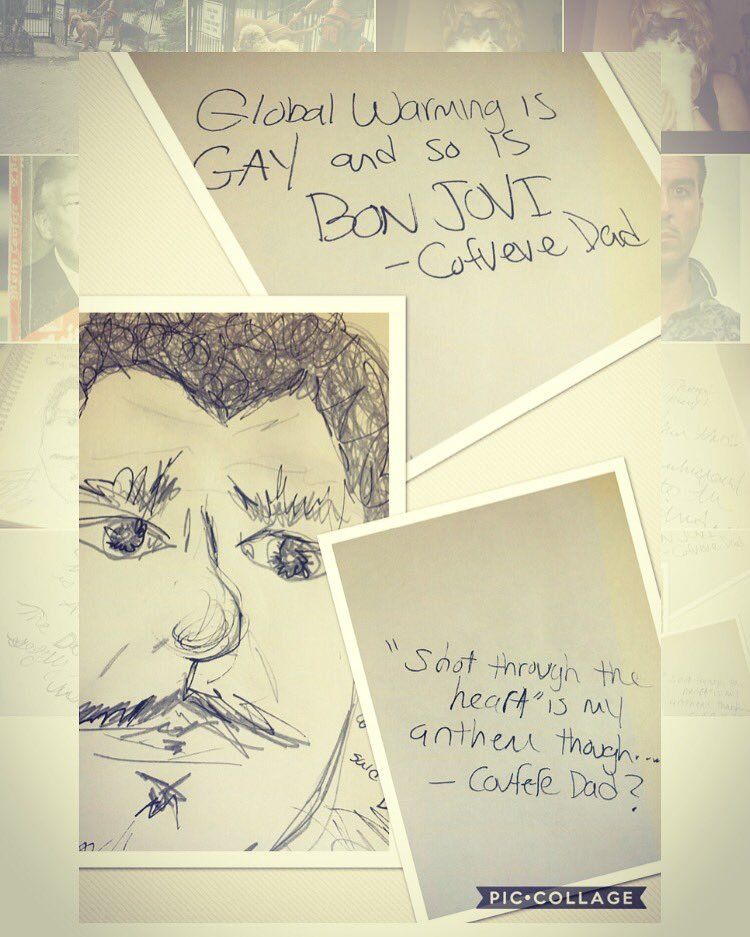 Global Warming is
GAY and so is
BON JOVI
- Cofveve Dad
"Shot through the
heart" is my
anthem though...
- Covfefe Dad?
PIC•COLLAGE